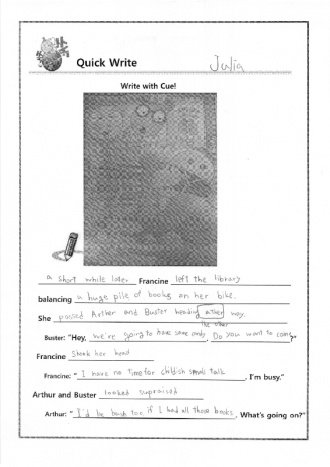 Quick Write
Julia
Write with Cue!
a short while later Francine left the library
balancing a huge pile of books on her bike.
She passed Arther and Buster heading other way.
the other
Buster: "Hey, we're going to have some candy. Do you want to come?"
Francine Shook her head
Francine: "I have no time for childish small talk, I'm busy."
Arthur and Buster looked supraised
Arthur: "I'd be busy too, if I had all those books. What's going on?"